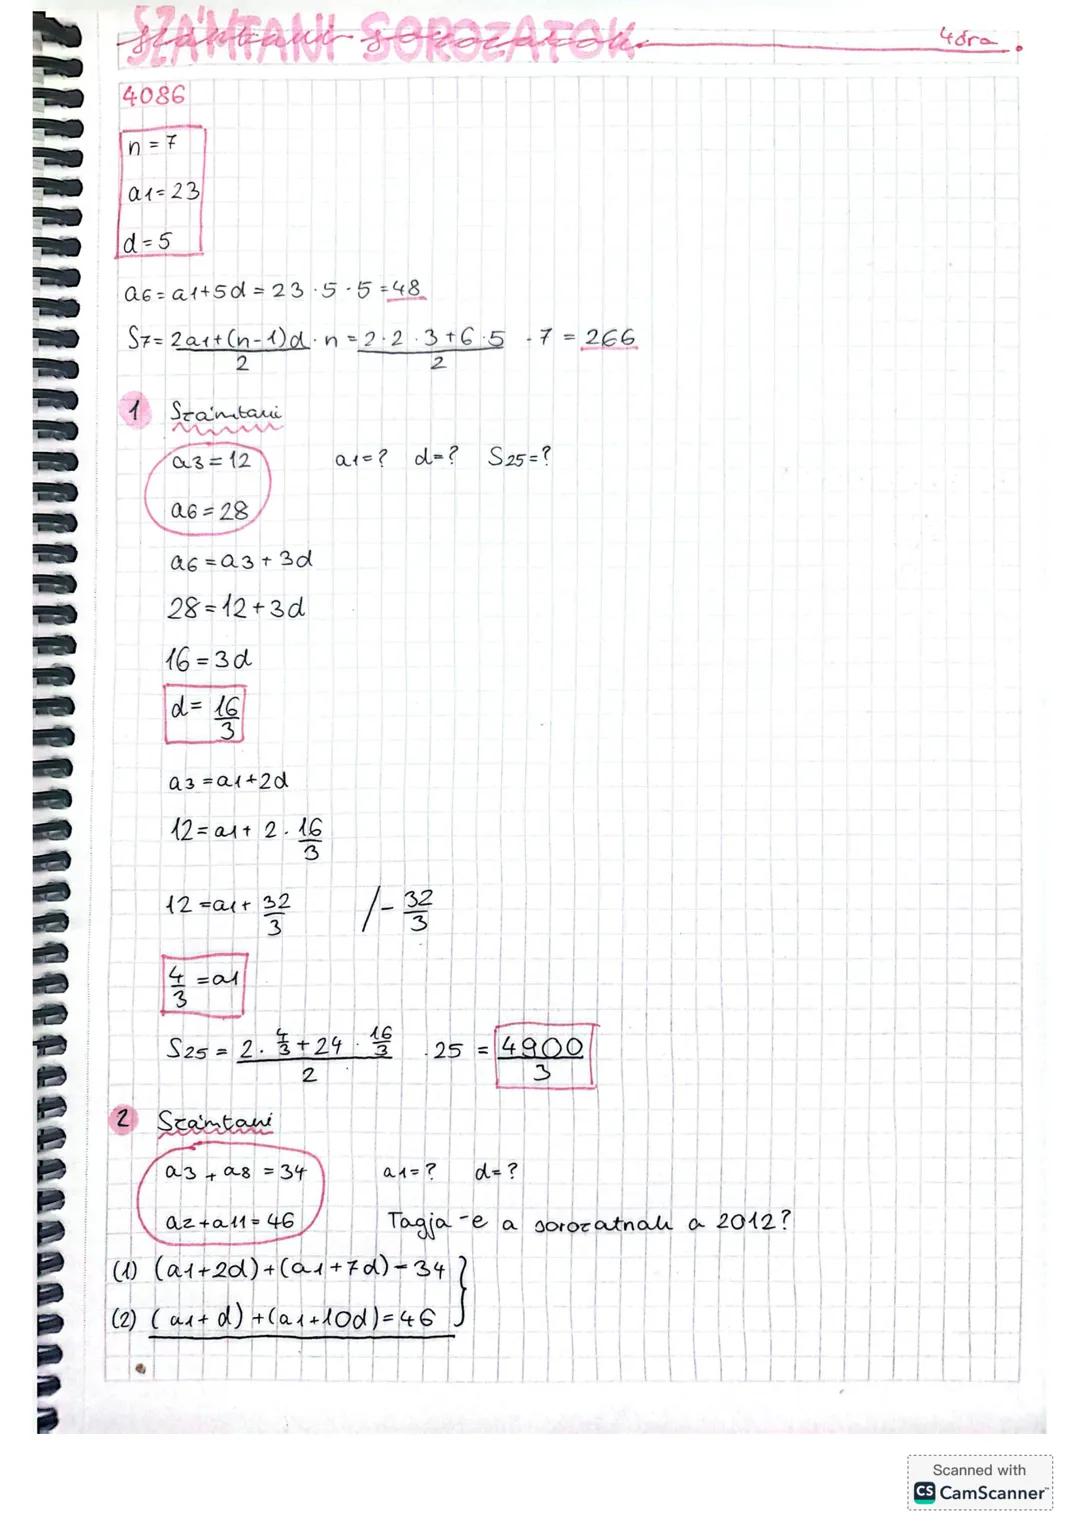 SZÁMTANI SOROZATOK
számtani sorozatok.
4óra.
4086
n = 7
a1=23
d=5
a6=a1+5d=23·5·5=48
S7=2a1+(n-1)d/2·n=2·2·3+6·5/2·7=266
1 Számtani
a3=12 a1=? d=? S25=?
a6=28
a6=a3+3d
28=12+3d
16=3d
d=16/3
a3=a1+2d
12=a1+2·16/3
12=a1+32/3 /-32/3
4/3=a1
S25=2·4/3+24·16/3/2·25=4900/3
2 Számtani
a3+a8=34 a1=? d=?
a2+a11=46 Tagja-e a sorozatnak a 2012?
(1) (a1+2d)+(a1+7d)=34
(2) (a1+d)+(a1+10d)=46
Scanned with
CS CamScanner™